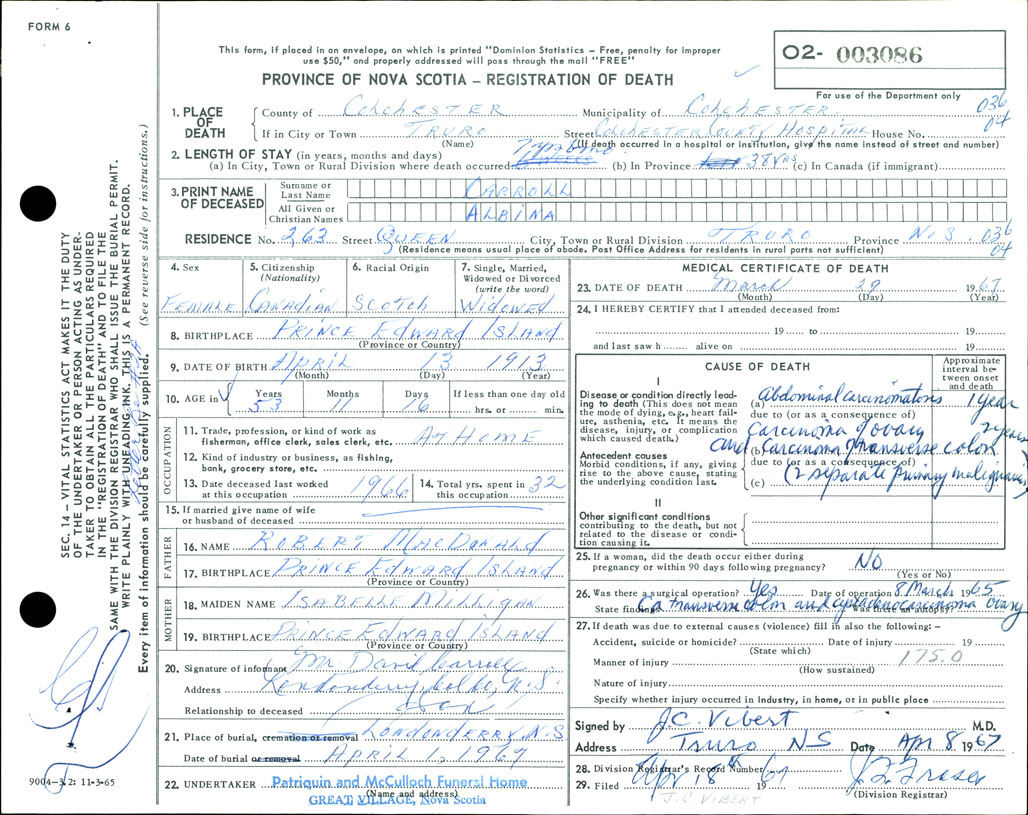 FORM 6
This form, if placed in an envelope, on which is printed "Dominion Statistics – Free, penalty for improper
use $50," and properly addressed will pass through the mail "FREE"
O2- 003086
PROVINCE OF NOVA SCOTIA – REGISTRATION OF DEATH
For use of the Department only
1. PLACE OF DEATH County of COLCHESTER Municipality of COLCHESTER 036
If in City or Town TRURO Street COLCHESTER COUNTY HOSPITAL House No. 04
(Name) (If death occurred in a hospital or institution, give the name instead of street and number)
2. LENGTH OF STAY (in years, months and days)
(a) In City, Town or Rural Division where death occurred (b) In Province 38 YRS (c) In Canada (if immigrant)
3. PRINT NAME OF DECEASED Surname or Last Name CARROLL
All Given or Christian Names ALBINA
RESIDENCE No. 263 Street QUEEN City, Town or Rural Division TRURO Province N.S. 036
04
(Residence means usual place of abode. Post Office Address for residents in rural parts not sufficient)
4. Sex 5. Citizenship (Nationality) 6. Racial Origin 7. Single, Married, Widowed or Divorced (write the word)
FEMALE CANADIAN SCOTCH WIDOWED
8. BIRTHPLACE PRINCE EDWARD ISLAND
(Province or Country)
9. DATE OF BIRTH APRIL 13 1913
(Month) (Day) (Year)
10. AGE in Years Months Days If less than one day old
53 11 16 hrs. or min.
OCCUPATION
11. Trade, profession, or kind of work as
fisherman, office clerk, sales clerk, etc. AT HOME
12. Kind of industry or business, as fishing,
bank, grocery store, etc.
13. Date deceased last worked at this occupation 1966 14. Total yrs. spent in this occupation 32
15. If married give name of wife
or husband of deceased
FATHER
16. NAME ROBERT MACDONALD
17. BIRTHPLACE PRINCE EDWARD ISLAND
(Province or Country)
MOTHER
18. MAIDEN NAME ISABELLE MILLIGAN
19. BIRTHPLACE PRINCE EDWARD ISLAND
(Province or Country)
20. Signature of informant Mr David Carroll
Address Londonderry, Col Co, N.S.
Relationship to deceased Son
21. Place of burial, cremation or removal LONDONDERRY N.S.
Date of burial or removal APRIL 1, 1967
22. UNDERTAKER Patriquin and McCulloch Funeral Home
(Name and address)
GREAT VILLAGE, Nova Scotia
MEDICAL CERTIFICATE OF DEATH
23. DATE OF DEATH March 29 1967
(Month) (Day) (Year)
24. I HEREBY CERTIFY that I attended deceased from:
19 to 19
and last saw h alive on 19
CAUSE OF DEATH
Approximate interval between onset and death
I
Disease or condition directly leading to death (This does not mean the mode of dying, e.g., heart failure, asthenia, etc. It means the disease, injury, or complication which caused death.)
(a) Abdominal carcinomatosis 1 year
due to (or as a consequence of)
Carcinoma of ovary 2 years
Antecedent causes
Morbid conditions, if any, giving rise to the above cause, stating the underlying condition last.
(b) and Carcinoma of transverse colon
due to (or as a consequence of)
(c) (2 separate primary malignancies)
II
Other significant conditions
contributing to the death, but not related to the disease or condition causing it.
25. If a woman, did the death occur either during
pregnancy or within 90 days following pregnancy? NO
(Yes or No)
26. Was there a surgical operation? Yes Date of operation 8 March 1965
State findings Was there an autopsy?
Ca transverse colon and cystadenocarcinoma Ovary
27. If death was due to external causes (violence) fill in also the following:–
Accident, suicide or homicide? Date of injury 19
(State which)
Manner of injury 175.0
(How sustained)
Nature of injury
Specify whether injury occurred in industry, in home, or in public place
Signed by J.C. Vibert M.D.
Address Truro NS Date Apr 8 1967
28. Division Registrar's Record Number
29. Filed Apr 18th 1967
J.C. VIBERT
(Division Registrar)
SEC. 14 – VITAL STATISTICS ACT MAKES IT THE DUTY
OF THE UNDERTAKER OR PERSON ACTING AS UNDERTAKER TO OBTAIN ALL THE PARTICULARS REQUIRED
IN THE "REGISTRATION OF DEATH" AND TO FILE THE
SAME WITH THE DIVISION REGISTRAR WHO SHALL ISSUE THE BURIAL PERMIT.
WRITE PLAINLY WITH UNFADING INK. THIS IS A PERMANENT RECORD.
Every item of information should be carefully supplied. (See reverse side for instructions.)
9004-3.2: 11-3-65